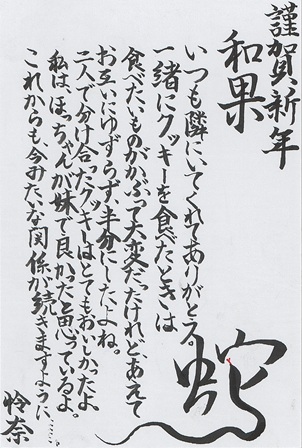 謹賀新年
和果
いつも隣にいてくれてありがとう。
一緒にクッキーを食べたときは
食べたいものがかぶって大変だったけれど、あえて
お互いにゆずらず、半分にしたよね。
二人で分け合ったクッキーはとてもおいしかったよ
私は、ほっちゃんが妹で良かったと思っているよ。
これからも、今みたいな関係が続きますように……。
怜奈
蛇